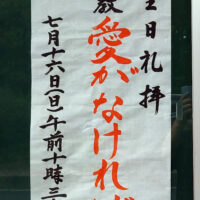 主日礼拝
教 愛がなければ
七月十六日(日)午前十時三